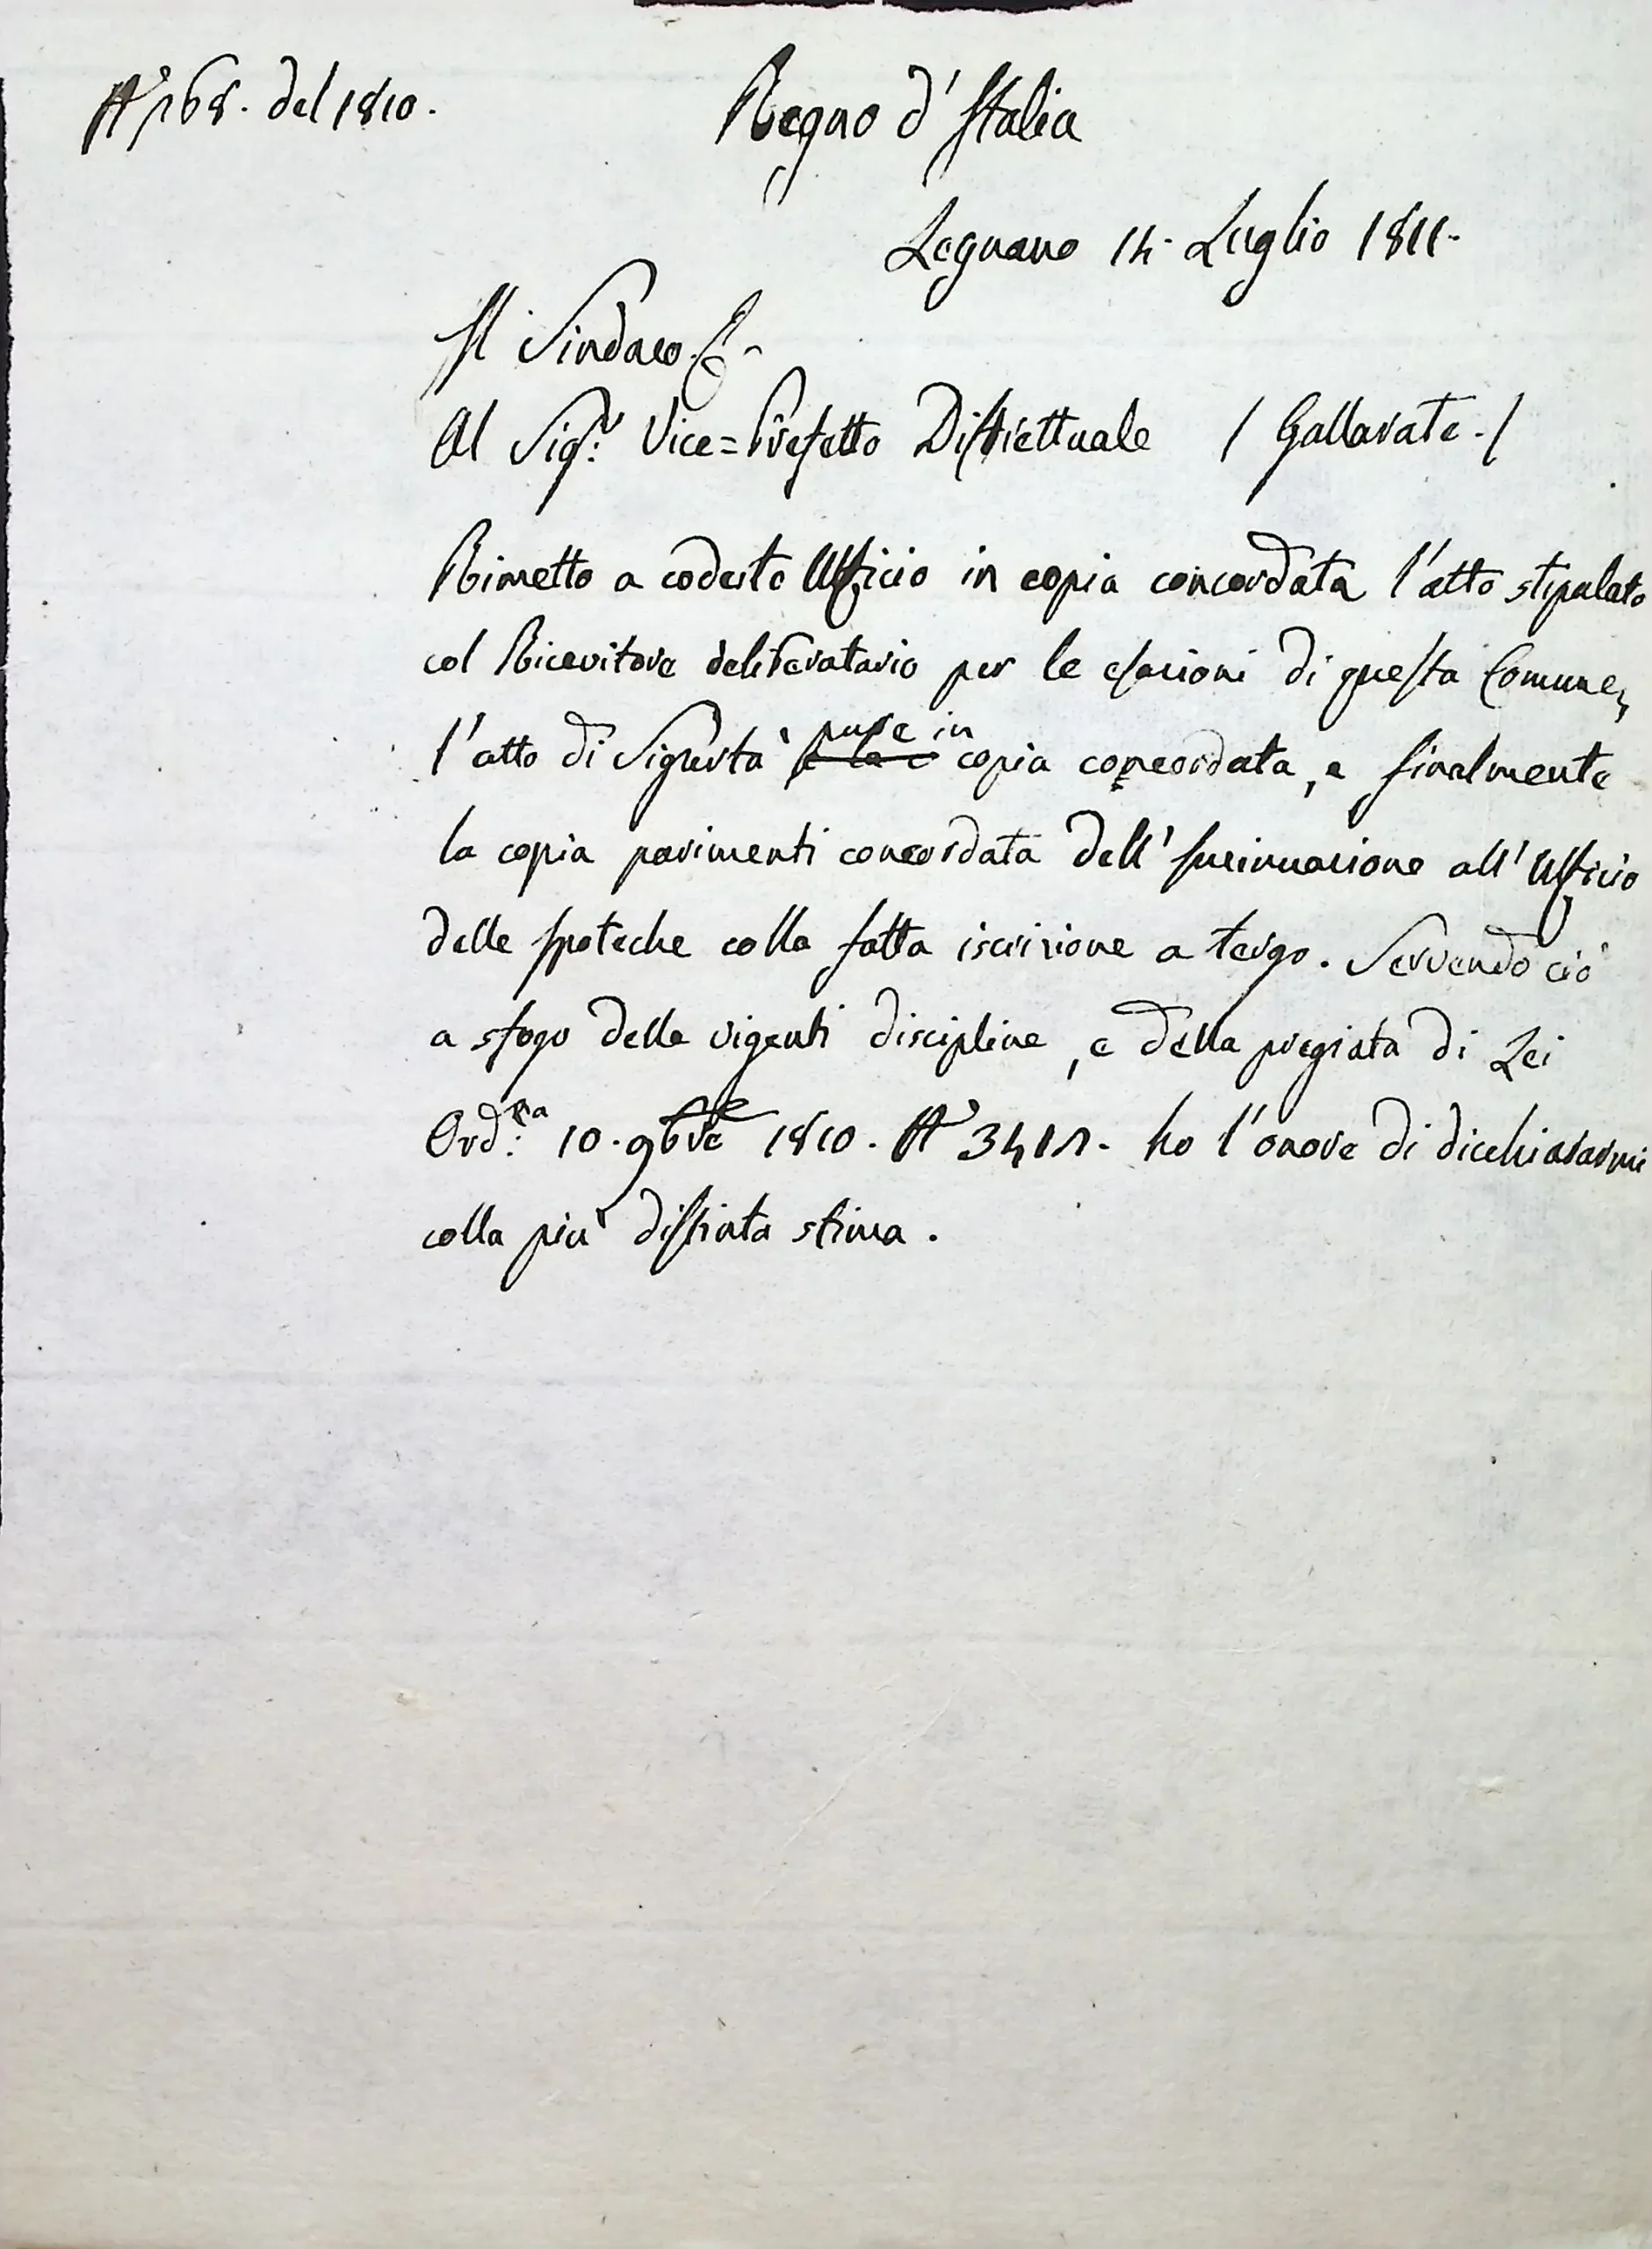 N° 168. del 1810.
Regno d'Italia
Legnano 14. Luglio 1811.
Il Sindaco
Al Sigr. Vice=Prefetto Distrettuale / Gallarate. /
Rimetto a codesto Ufficio in copia concordata l'atto stipulato
col Ricevitore deliberatario per le esazioni di questa Comune,
l'atto di Sigurtà pure in copia concordata, e finalmente
la copia parimenti concordata dell' Insinuazione all' Ufficio
delle Ipoteche colla fatta iscrizione a tergo. Servendo ciò
a sfogo delle vigenti discipline, e della pregiata di Lei
Ord.za 10. 9bre 1810. N° ho l'onore di dicchiararmi
colla più distinta stima.